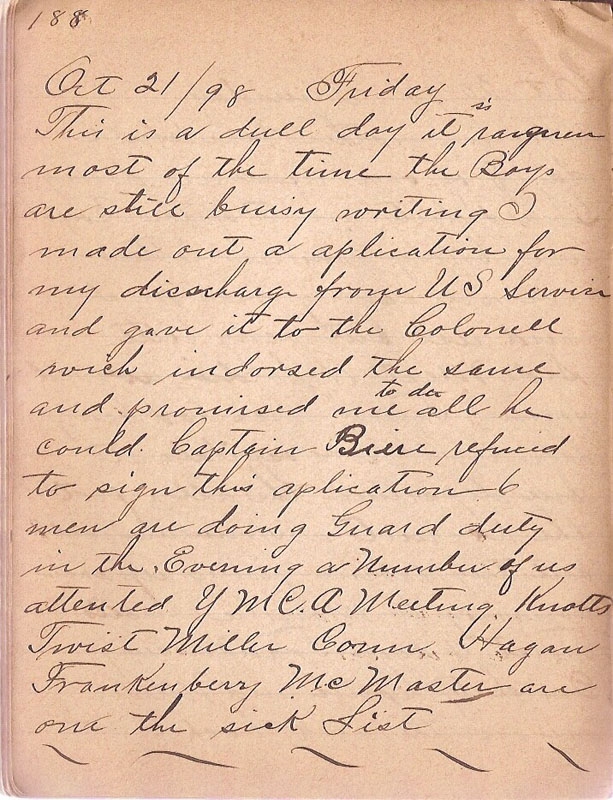 188
Oct 21/98 Friday
This is a dull day it is
most of the time the Boys
are still buisy writing I
made out a aplication for
my discharge from US Service
and gave it to the Colonell
wich indorsed the same
and promised me to do all he
could. Captain Biere refused
to sign this aplication 6
men are doing Guard duty
in the Evening a Number of us
attented Y M C. A Meeting Knotts
Twist Miller Conn Hagan
Frankenberry Mc Master are
one the sick List